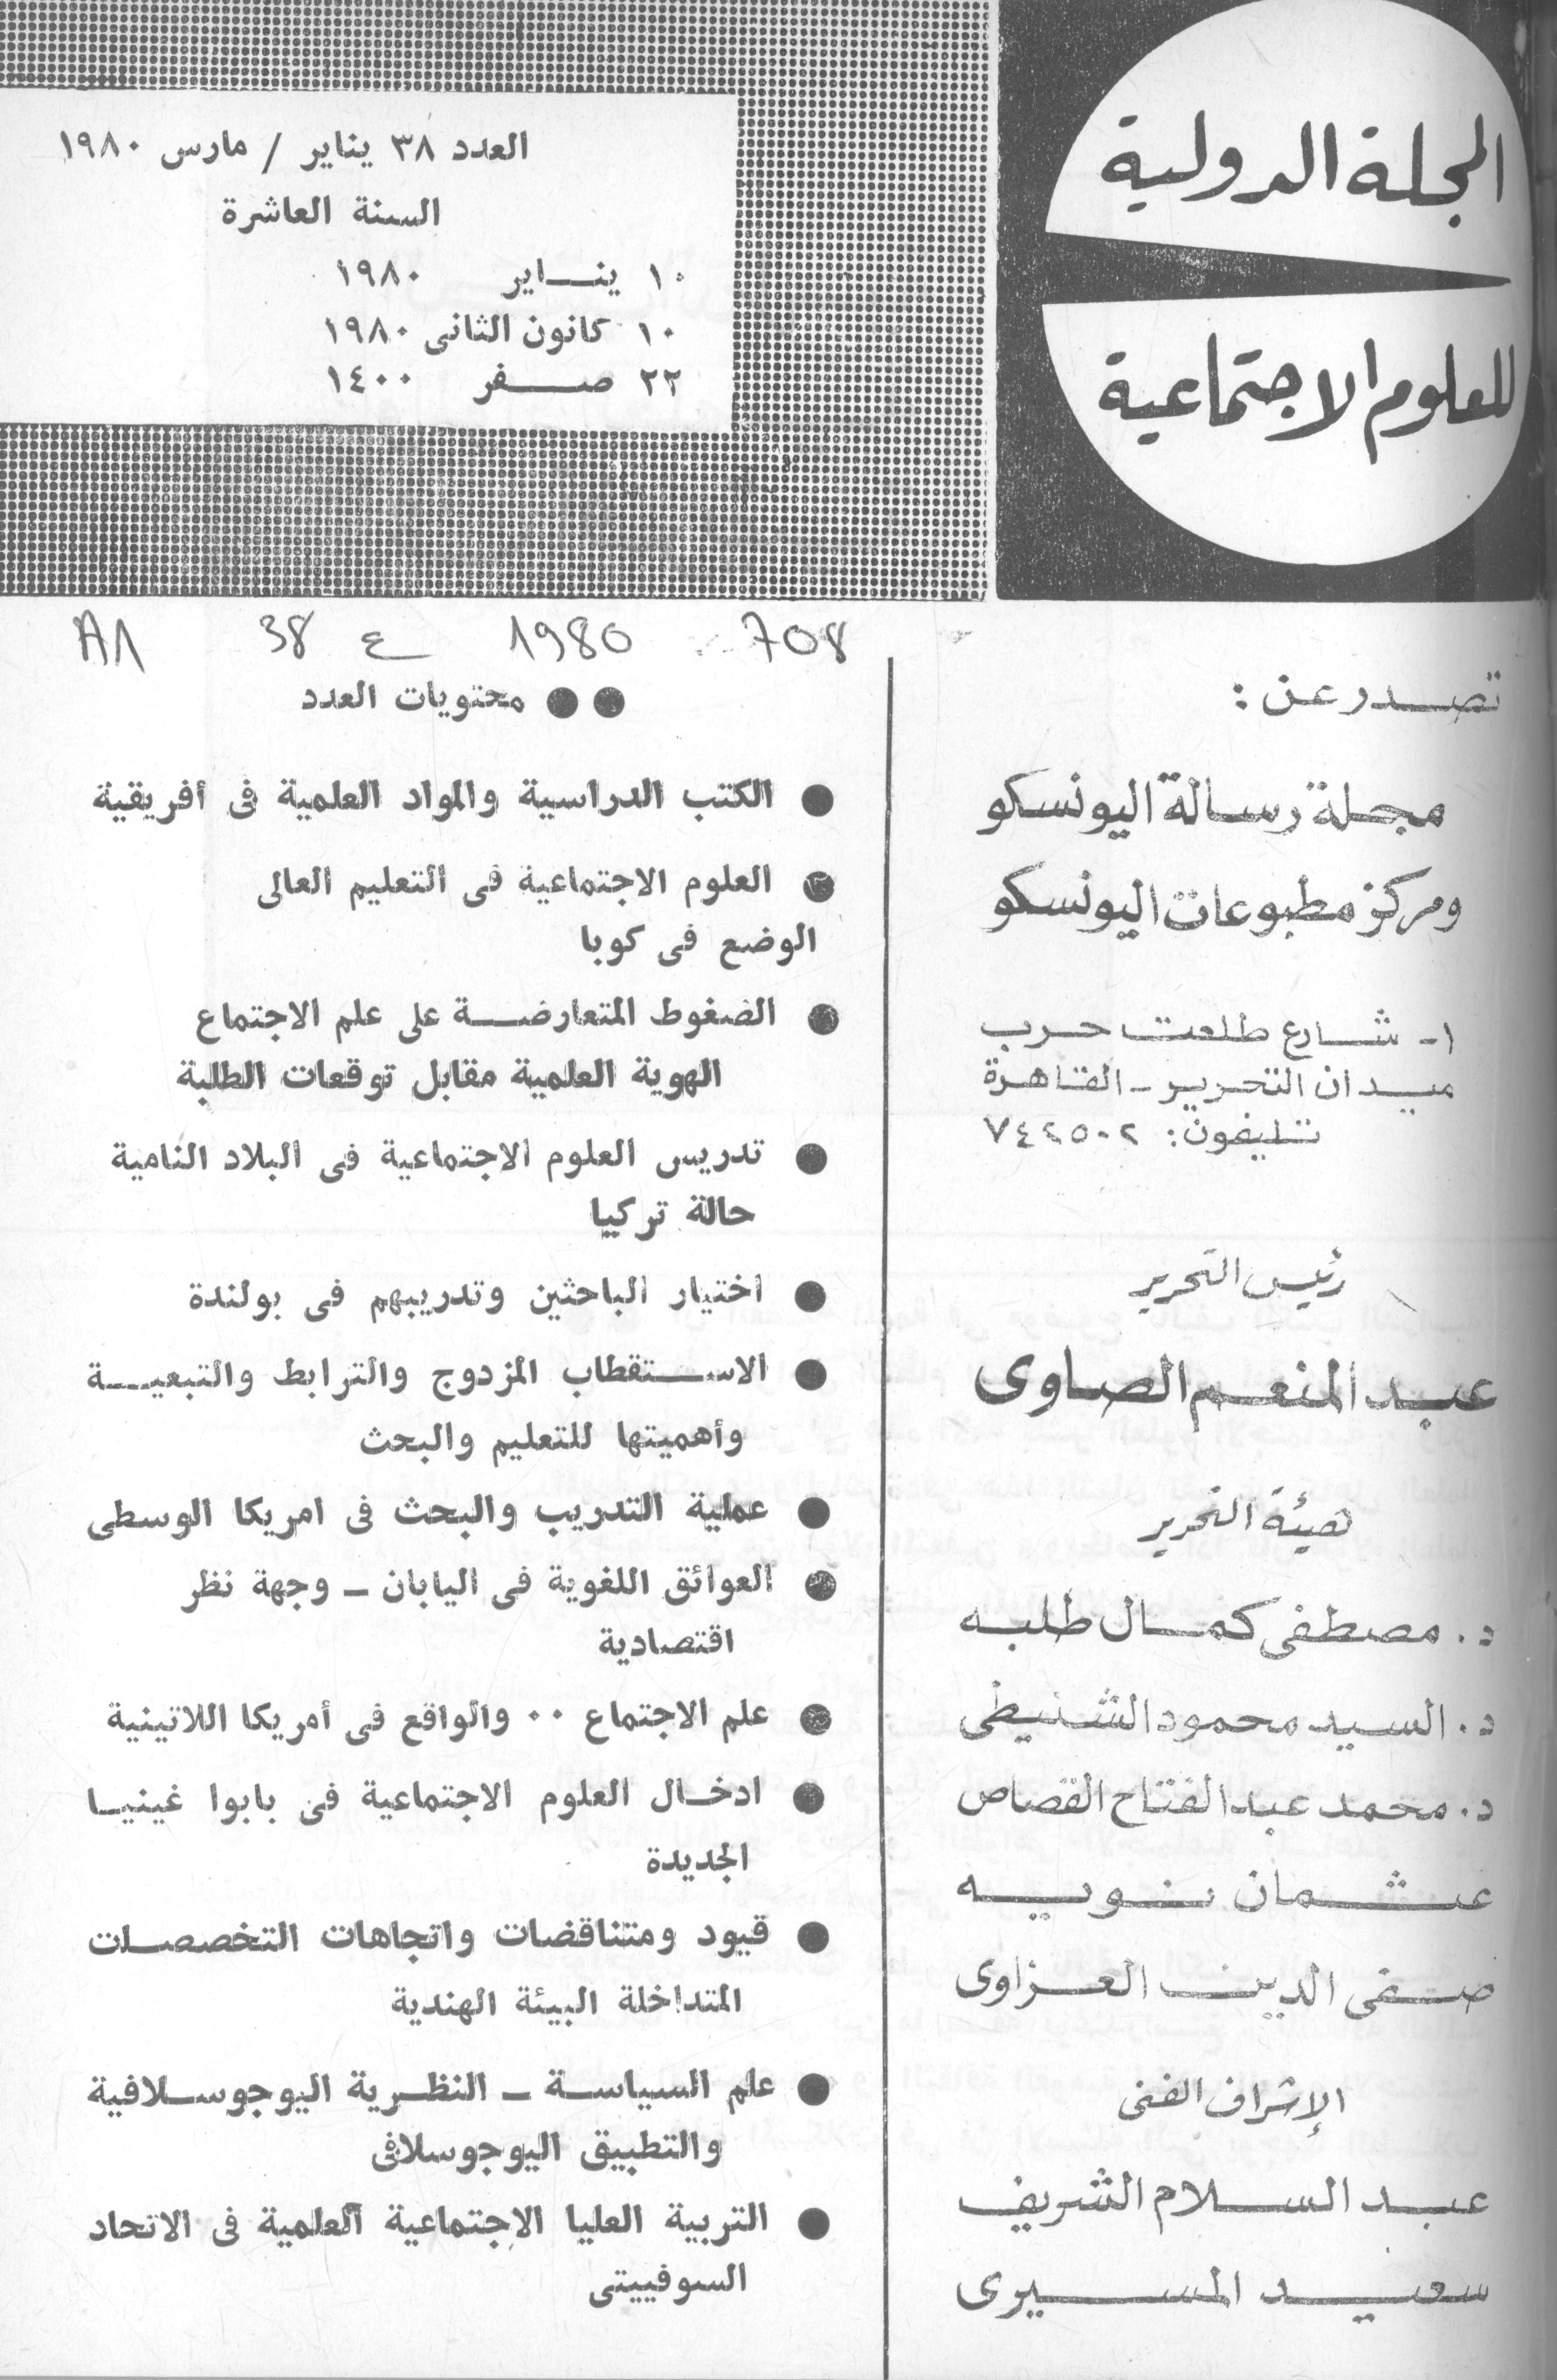 المجلة الدولية
للعلوم الاجتماعية
العدد ٣٨ يناير / مارس ١٩٨٠
السنة العاشرة
١٠ ينـــاير ١٩٨٠
١٠ كانون الثانى ١٩٨٠
٢٢ صـــفر ١٤٠٠
A1 38 ع 1980 708
تصدر عن :
مجلة رسالة اليونسكو
ومركز مطبوعات اليونسكو
١ - شارع طلعت حرب
ميدان التحرير - القاهرة
تليفون : ٧٤٢٥٠٢
رئيس التحرير
عبد المنعم الصاوى
هيئة التحرير
د . مصطفى كمال طلبه
د . السيد محمود الشنيطى
د . محمد عبد الفتاح القصاص
عثمان نويه
صفى الدين العزاوى
الإشراف الفنى
عبد السلام الشريف
سعيد المسيرى
●● محتويات العدد
● الكتب الدراسية والمواد العلمية فى أفريقية
● العلوم الاجتماعية فى التعليم العالى
الوضع فى كوبا
● الضغوط المتعارضـــة على علم الاجتماع
الهوية العلمية مقابل توقعات الطلبة
● تدريس العلوم الاجتماعية فى البلاد النامية
حالة تركيا
● اختيار الباحثين وتدريبهم فى بولندة
● الاســـتقطاب المزدوج والترابط والتبعيـــة
وأهميتها للتعليم والبحث
● عملية التدريب والبحث فى امريكا الوسطى
● العوائق اللغوية فى اليابان ــ وجهة نظر
اقتصادية
● علم الاجتماع ٠٠ والواقع فى أمريكا اللاتينية
● ادخـال العلوم الاجتماعية فى بابوا غينيـا
الجديدة
● قيود ومتناقضات واتجاهات التخصصـات
المتداخلة البيئة الهندية
● علم السياسـة ــ النظـرية اليوجوسـلافية
والتطبيق اليوجوسلافى
● التربية العليا الاجتماعية العلمية فى الاتحاد
السوفييتى